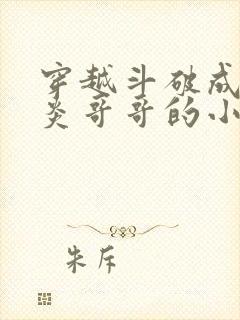 穿越斗破成
炎哥哥的小
朱斥